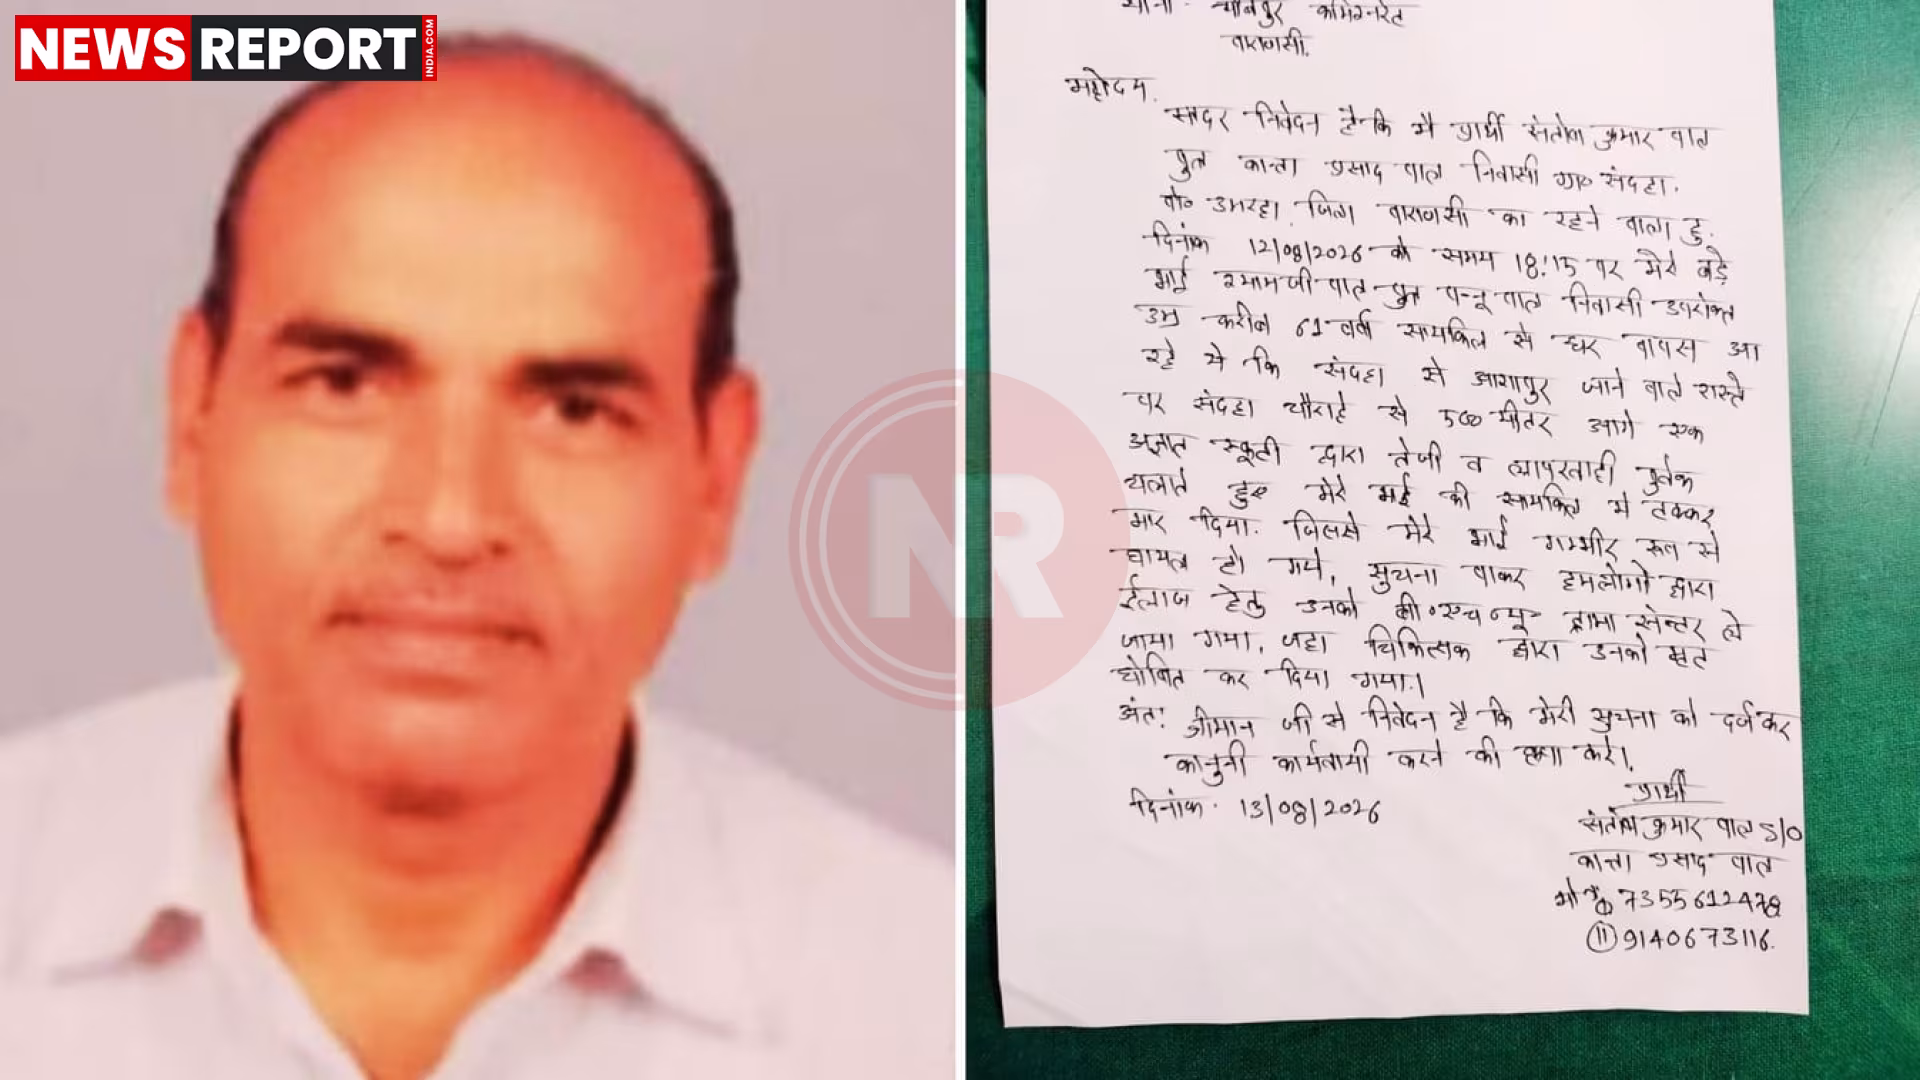 NEWS REPORT
INDIA.COM
NR
थाना - चौबेपुर कमिश्नरेट
वाराणसी.
महोदय.
सादर निवेदन है कि मै प्रार्थी संतोष कुमार पाल
पुत्र कान्ता प्रसाद पाल निवासी ग्रा० संदहा.
पो० उमरहा. जिला वाराणसी का रहने वाला हु.
दिनांक 12/08/2026 को समय 18:15 पर मेरे बड़े
भाई श्यामजी पाल पुत्र पन्नू पाल निवासी उपरोक्त
उम्र करीब 61 वर्ष सायकिल से घर वापस आ
रहे थे कि संदहा से आशापुर जाने वाले रास्ते
पर संदहा चौराहे से 500 मीटर आगे एक
अज्ञात स्कूटी द्वारा तेजी व लापरवाही पुर्वक
चलाते हुए मेरे भाई की सायकिल मे टक्कर
मार दिया. जिससे मेरे भाई गम्भीर रूप से
घायल हो गये, सुचना पाकर हमलोगो द्वारा
ईलाज हेतु उनको बी०एच०यू० ट्रामा सेन्टर ले
जाया गया, जहा चिकित्सक द्वारा उनको मृत
घोषित कर दिया गया।
अंतः श्रीमान जी से निवेदन है कि मेरी सुचना को दर्ज कर
कानुनी कार्यवायी करने की कृपा करे।
दिनांक. 13/08/2026
प्रार्थी
संतोष कुमार पाल S/O
कान्ता प्रसाद पाल
मो० 7355612478
(11) 9140673116.